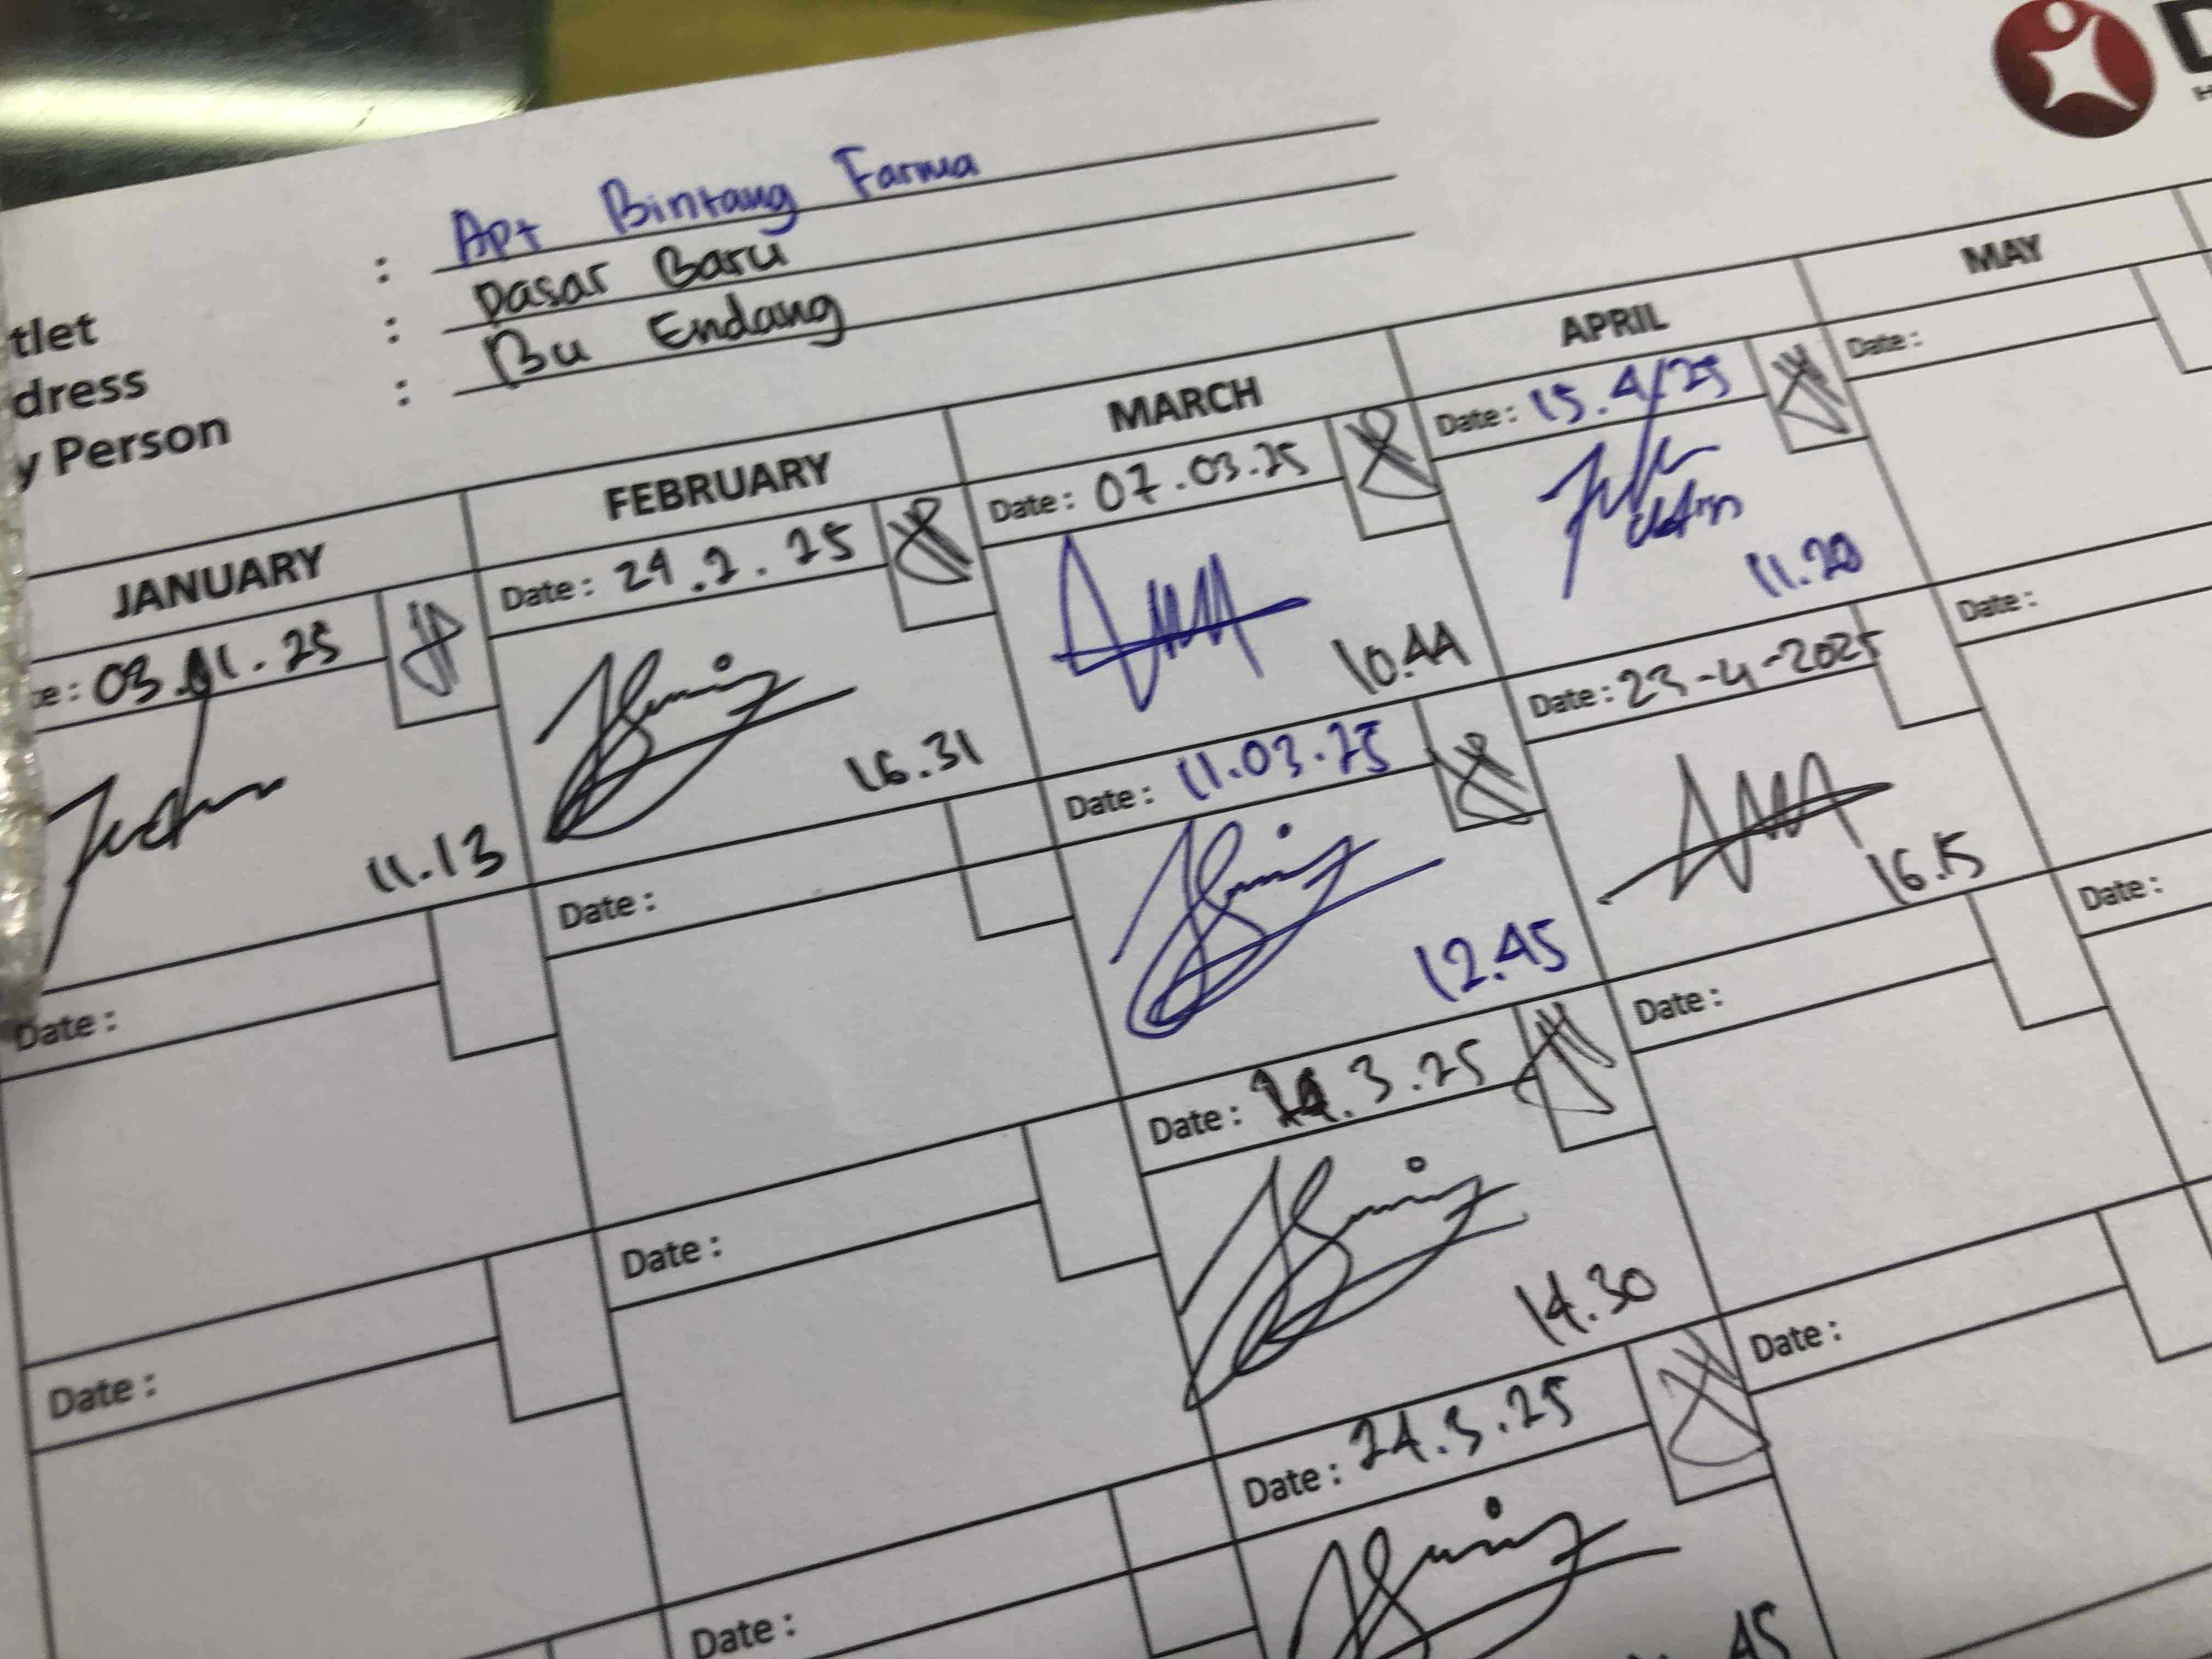 tlet : Apt Bintang Farma
dress : Pasar Baru
y Person : Bu Endang
JANUARY
FEBRUARY
MARCH
APRIL
MAY
te: 03.01.25
11.13
Date :
Date :
Date : 24.2.25
16.31
Date :
Date :
Date :
Date : 07.03.25
10.44
Date : 11.03.25
12.45
Date : 3.25
14.30
Date : 24.3.25
45
Date : 15.4/25
11.20
Date : 23-4-2025
16.15
Date :
Date :
Date :
Date :
Date :